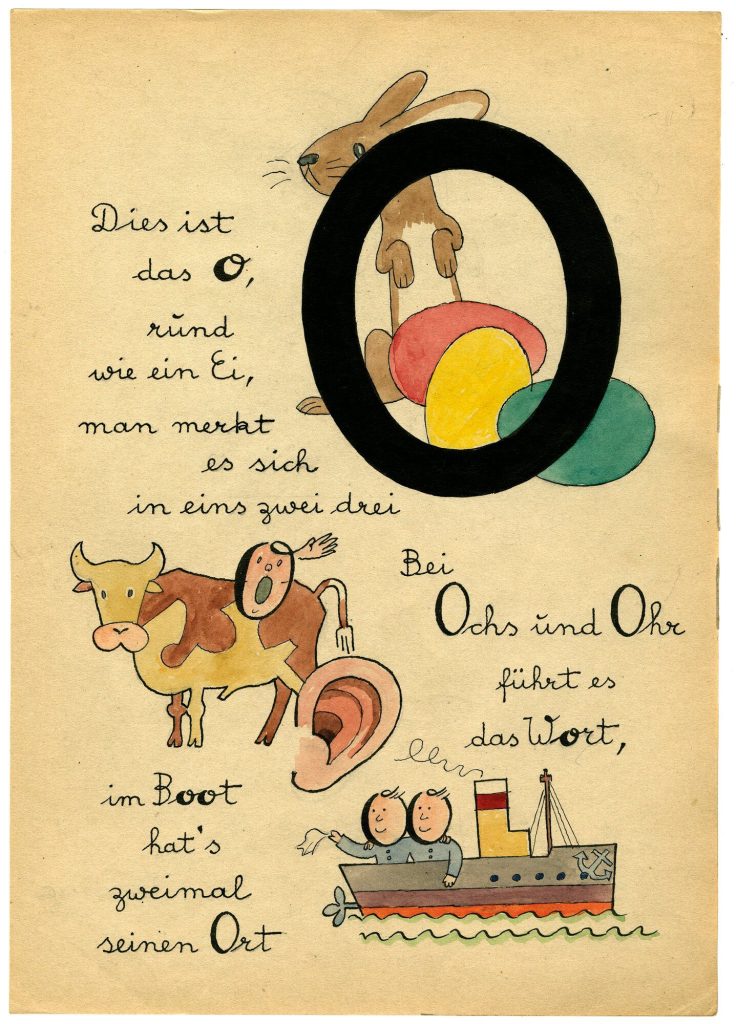 Dies ist
das O,
rund
wie ein Ei,
man merkt
es sich
in eins zwei drei
O
Bei
Ochs und Ohr
führt es
das Wort,
im Boot
hat's
zweimal
seinen Ort